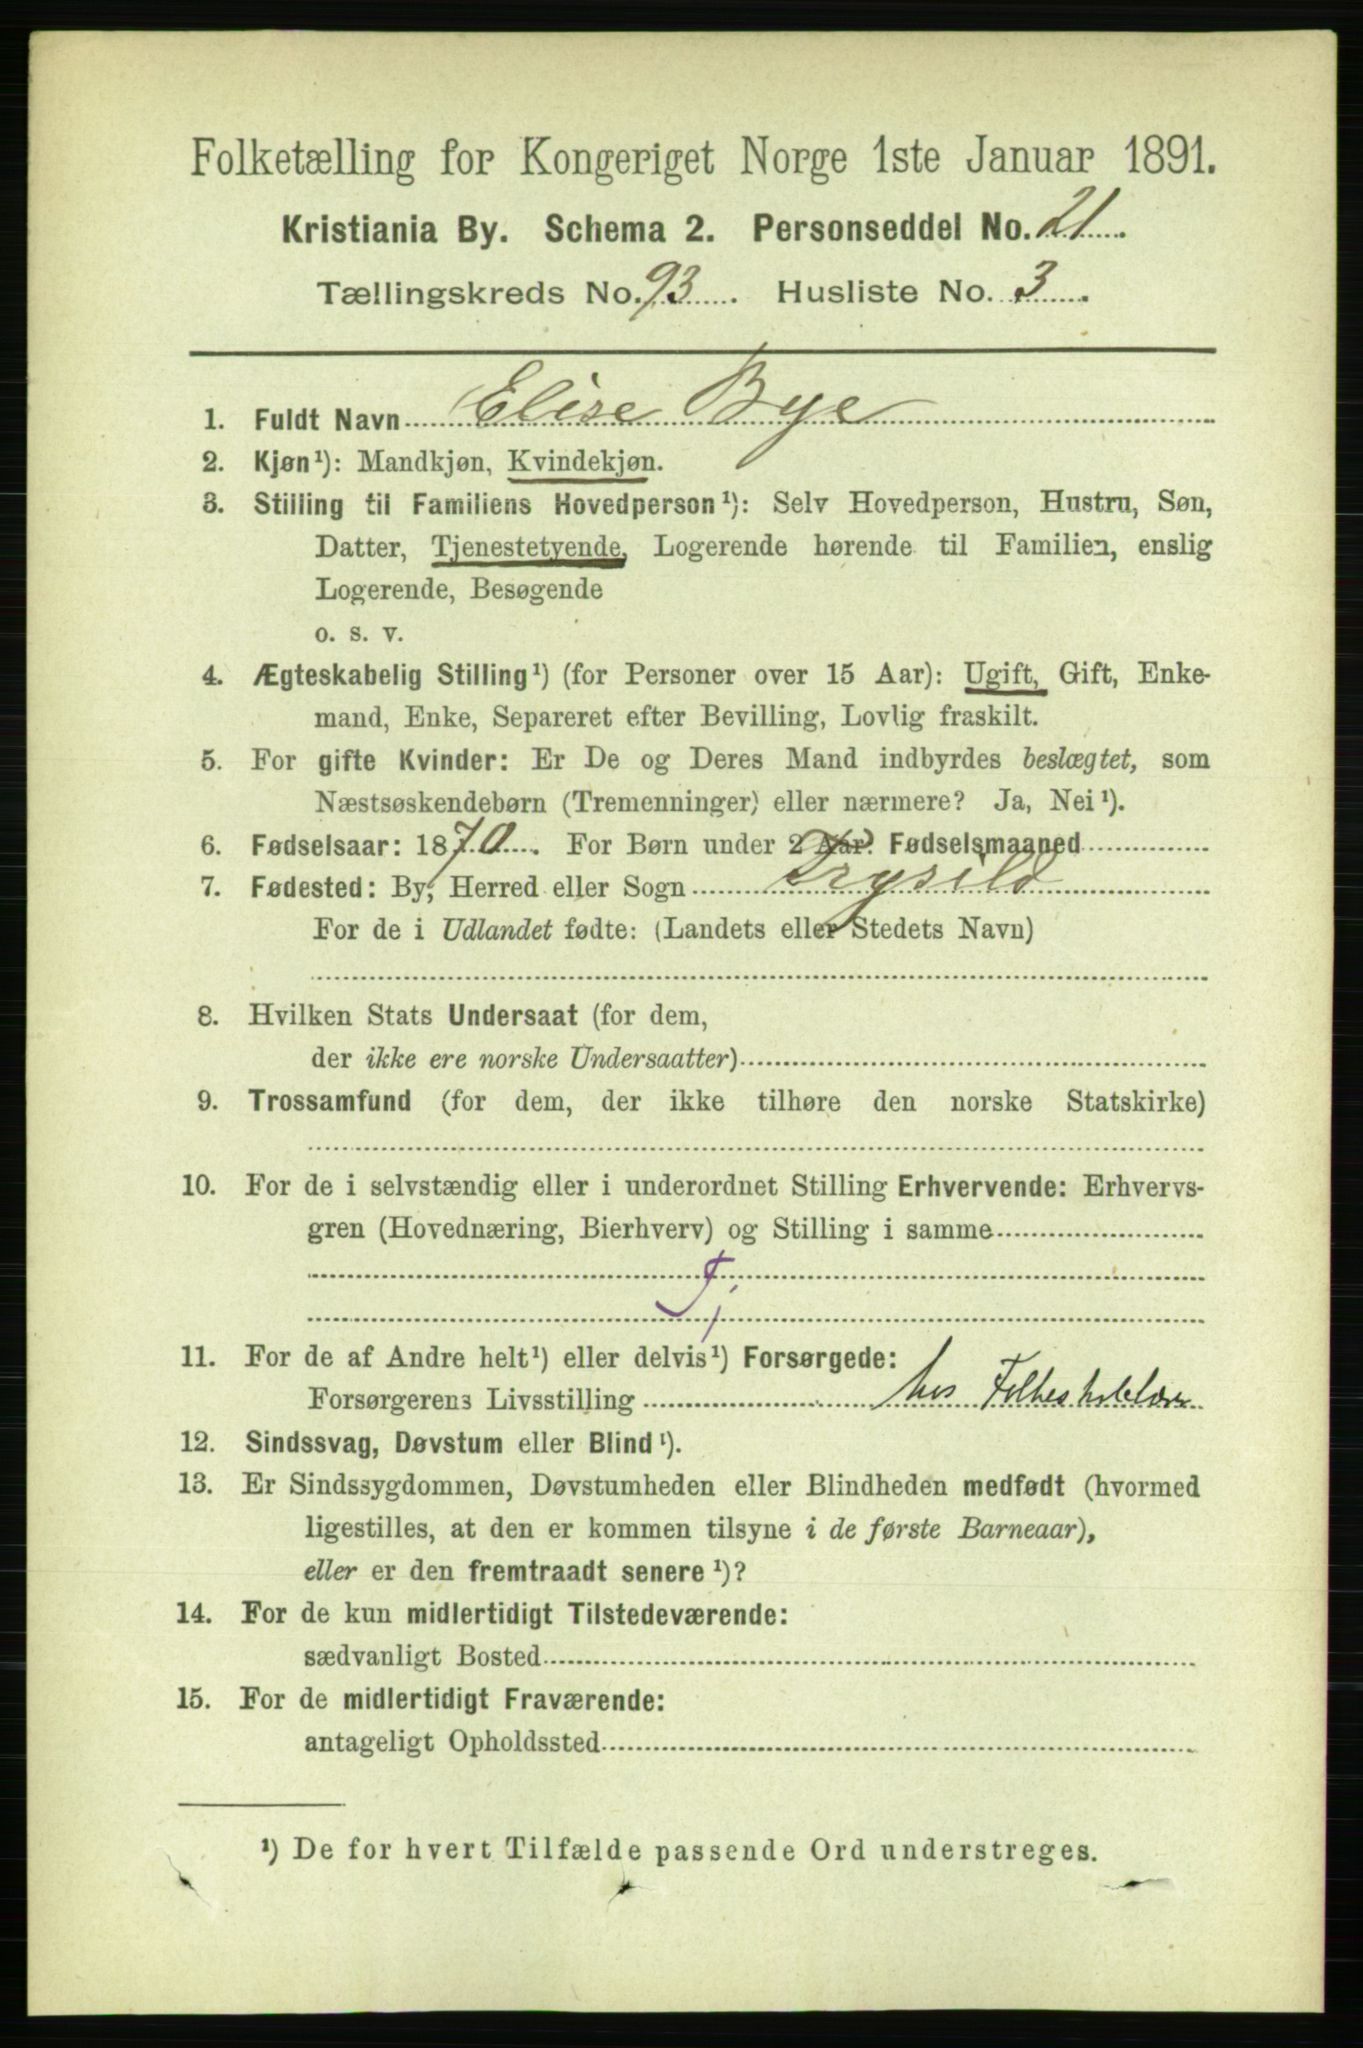 Folketælling for Kongeriget Norge 1ste Januar 1891.
Kristiania By. Schema 2. Personseddel No. 21.
Tællingskreds No. 93. Husliste No. 3.
1. Fuldt Navn Elise Bye
2. Kjøn¹): Mandkjøn, Kvindekjøn.
3. Stilling til Familiens Hovedperson¹): Selv Hovedperson, Hustru, Søn,
Datter, Tjenestetyende, Logerende hørende til Familien, enslig
Logerende, Besøgende
o. s. v.
4. Ægteskabelig Stilling¹) (for Personer over 15 Aar): Ugift, Gift, Enke-
mand, Enke, Separeret efter Bevilling, Lovlig fraskilt.
5. For gifte Kvinder: Er De og Deres Mand indbyrdes beslægtet, som
Næstsøskendebørn (Tremenninger) eller nærmere? Ja, Nei¹).
6. Fødselsaar: 1870. For Børn under 2 Aar: Fødselsmaaned
7. Fødested: By, Herred eller Sogn Trysild
For de i Udlandet fødte: (Landets eller Stedets Navn)
8. Hvilken Stats Undersaat (for dem,
der ikke ere norske Undersaatter)
9. Trossamfund (for dem, der ikke tilhøre den norske Statskirke)
10. For de i selvstændig eller i underordnet Stilling Erhvervende: Erhvervs-
gren (Hovednæring, Bierhverv) og Stilling i samme
Tj
11. For de af Andre helt¹) eller delvis¹) Forsørgede:
Forsørgerens Livsstilling hos
12. Sindssvag, Døvstum eller Blind¹).
13. Er Sindssygdommen, Døvstumheden eller Blindheden medfødt (hvormed
ligestilles, at den er kommen tilsyne i de første Barneaar),
eller er den fremtraadt senere¹)?
14. For de kun midlertidigt Tilstedeværende:
sædvanligt Bosted
15. For de midlertidigt Fraværende:
antageligt Opholdssted
¹) De for hvert Tilfælde passende Ord understreges.